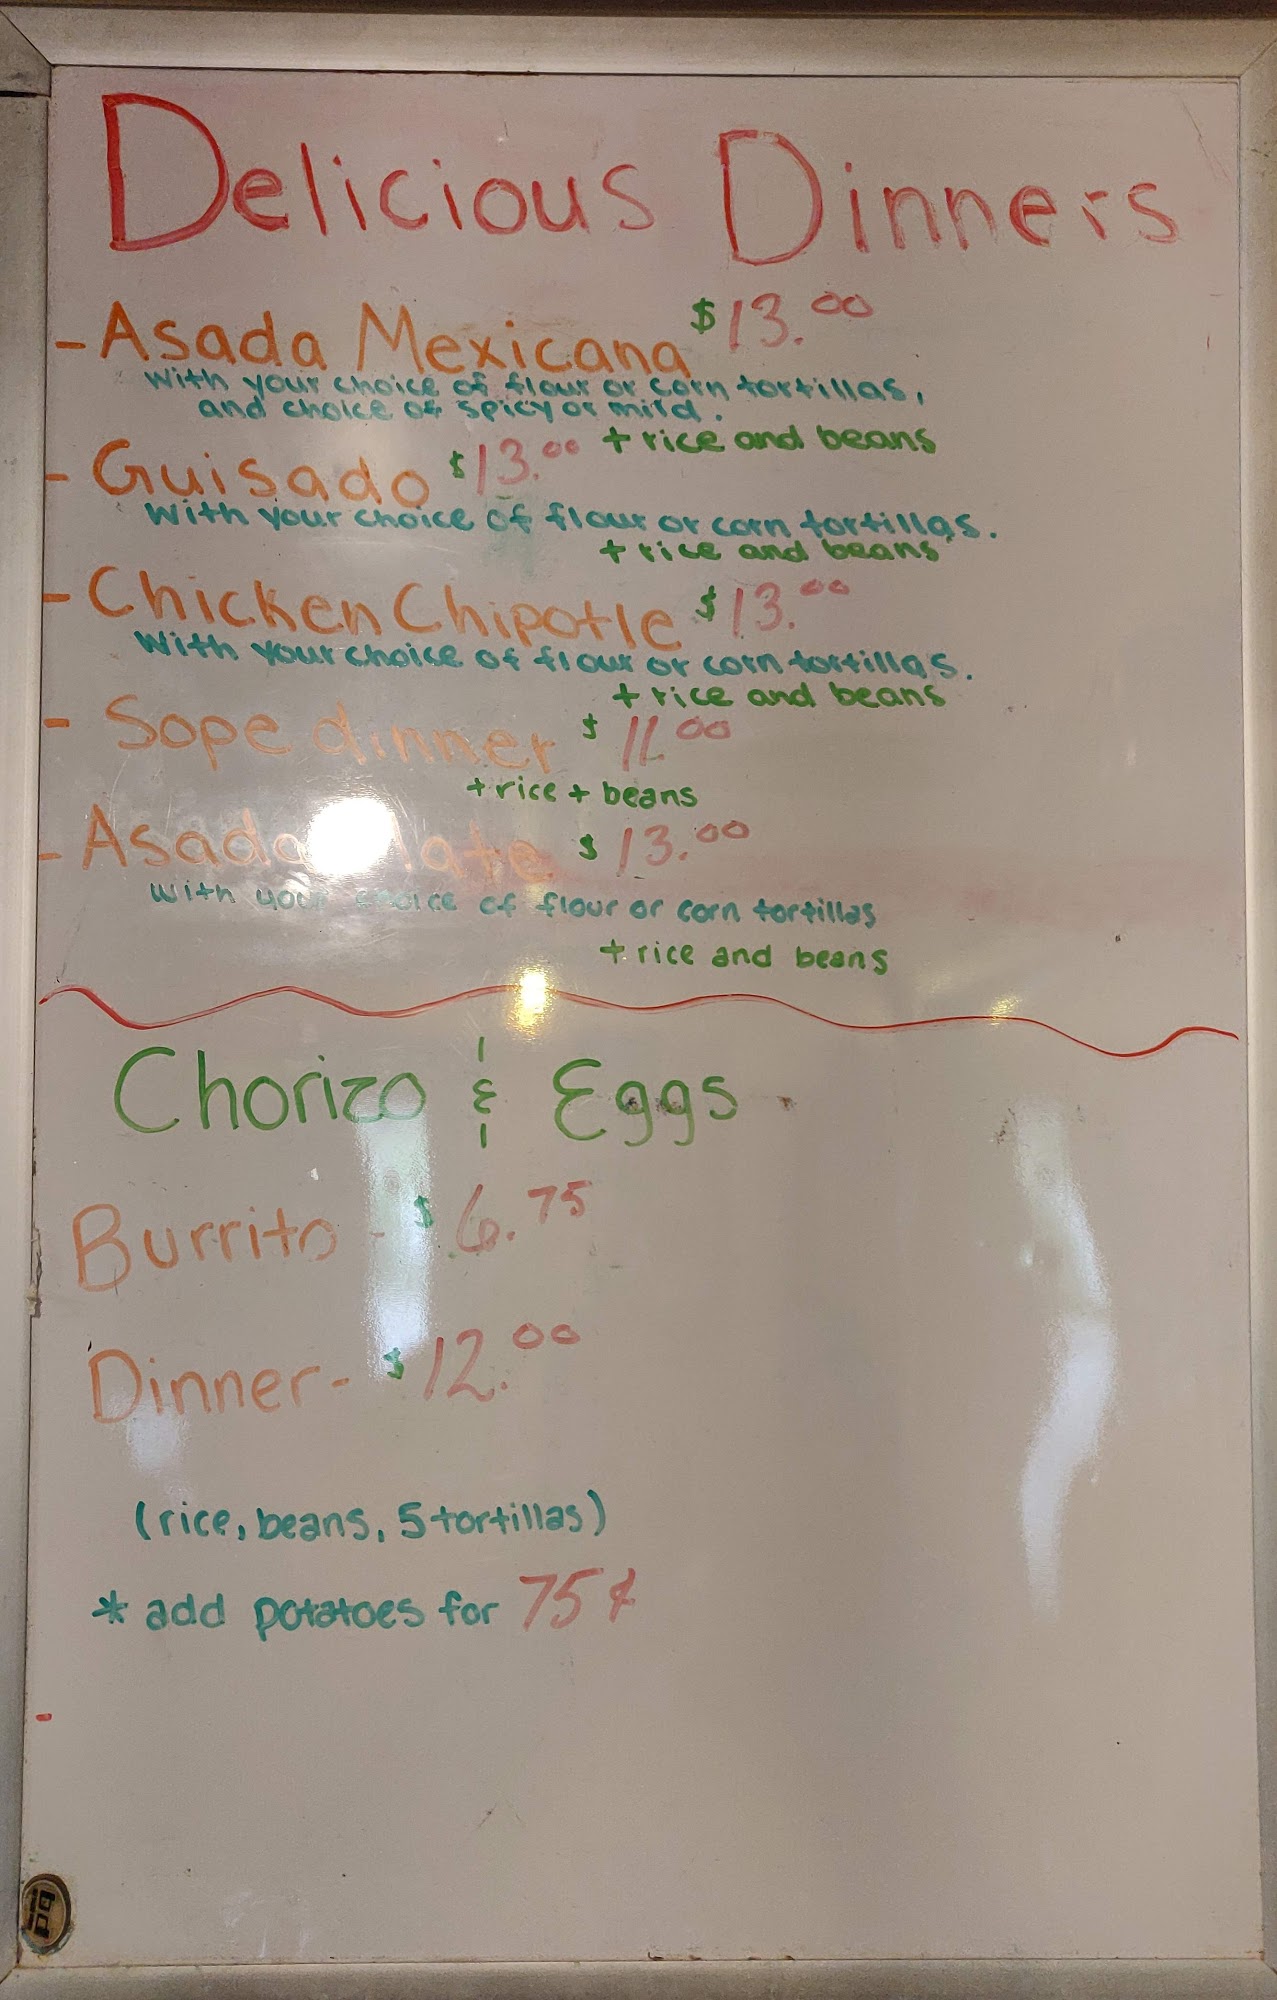 Delicious Dinners
- Asada Mexicana $13.00
with your choice of flour or corn tortillas,
and choice of spicy or mild.
+ rice and beans
- Guisado $13.00
With your choice of flour or corn tortillas.
+ rice and beans
- Chicken Chipotle $13.00
With your choice of flour or corn tortillas.
+ rice and beans
- Sope dinner $11.00
+ rice + beans
- Asada Plate $13.00
with your choice of flour or corn tortillas
+ rice and beans
Chorizo & Eggs
Burrito - $6.75
Dinner - $12.00
(rice, beans, 5 tortillas)
* add potatoes for 75¢
-